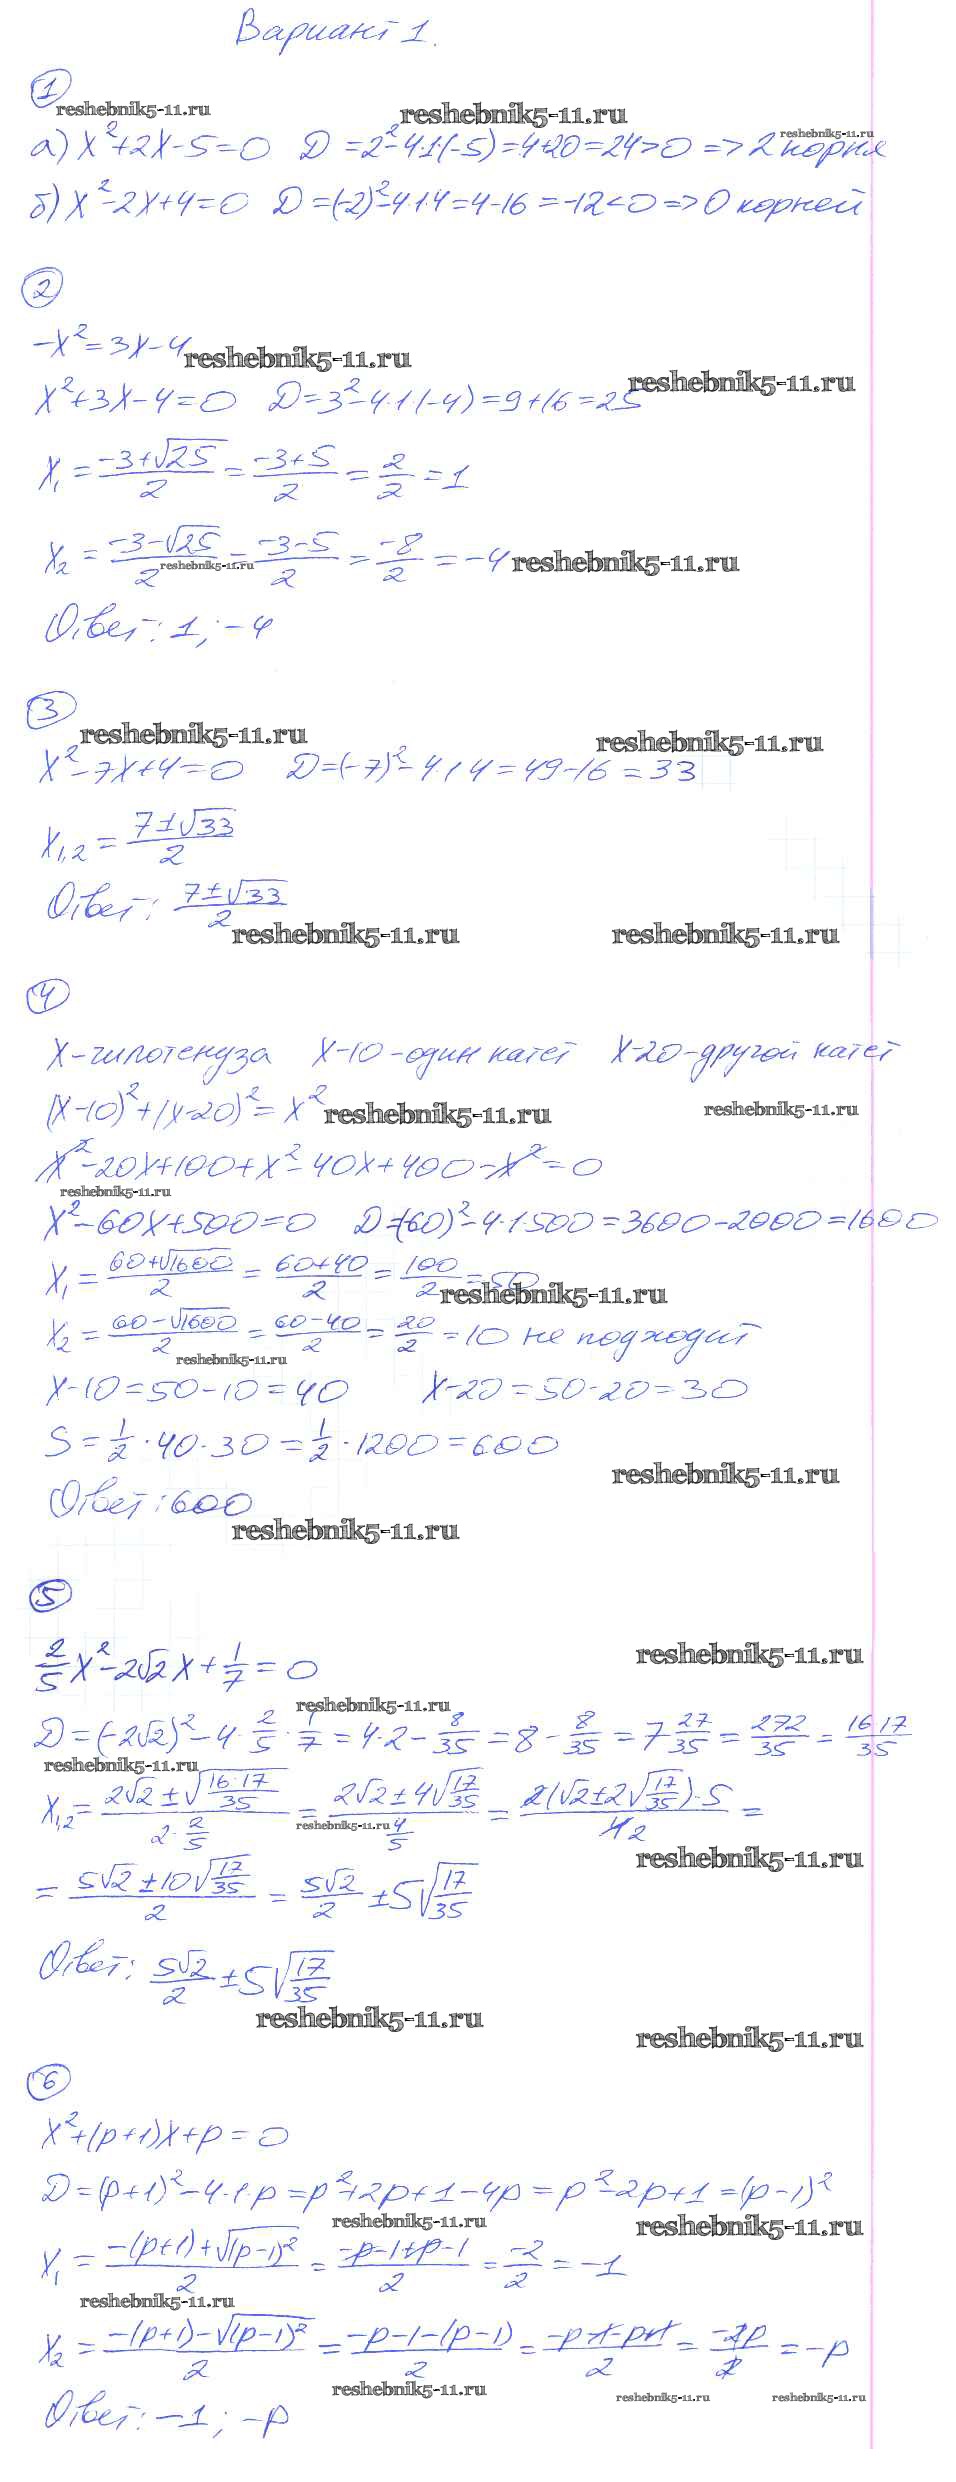 Вариант 1.
1
reshebnik5-11.ru reshebnik5-11.ru
а) x²+2x-5=0 D=2²-4·1·(-5)=4+20=24>0 => 2 корня reshebnik5-11.ru
б) x²-2x+4=0 D=(-2)²-4·1·4=4-16=-12<0 => 0 корней
2
-x²=3x-4 reshebnik5-11.ru
reshebnik5-11.ru
x²+3x-4=0 D=3²-4·1·(-4)=9+16=25
x₁=(-3+√25)/2=(-3+5)/2=2/2=1
x₂=(-3-√25)/2=(-3-5)/2=-8/2=-4 reshebnik5-11.ru
reshebnik5-11.ru
Ответ: 1; -4
3
reshebnik5-11.ru reshebnik5-11.ru
x²-7x+4=0 D=(-7)²-4·1·4=49-16=33
x₁,₂=(7±√33)/2
Ответ: (7±√33)/2
reshebnik5-11.ru reshebnik5-11.ru
4
x-гипотенуза x-10-один катет x-20-другой катет
(x-10)²+(x-20)²=x² reshebnik5-11.ru reshebnik5-11.ru
x²-20x+100+x²-40x+400-x²=0
reshebnik5-11.ru
x²-60x+500=0 D=(-60)²-4·1·500=3600-2000=1600
x₁=(60+√1600)/2=(60+40)/2=100/2=50
reshebnik5-11.ru
x₂=(60-√1600)/2=(60-40)/2=20/2=10 не подходит
reshebnik5-11.ru
x-10=50-10=40 x-20=50-20=30
S=1/2·40·30=1/2·1200=600
reshebnik5-11.ru
Ответ: 600
reshebnik5-11.ru
5
reshebnik5-11.ru
2/5x²-2√2x+1/7=0
reshebnik5-11.ru
D=(-2√2)²-4·2/5·1/7=4·2-8/35=8-8/35=7 27/35=272/35=16·17/35
reshebnik5-11.ru
x₁,₂=(2√2±√(16·17/35))/(2·2/5)=(2√2±4√(17/35))/(4/5)=(2(√2±2√(17/35))·5)/4 2=
reshebnik5-11.ru
reshebnik5-11.ru
=(5√2±10√(17/35))/2=5√2/2±5√(17/35)
Ответ: 5√2/2±5√(17/35)
reshebnik5-11.ru
reshebnik5-11.ru
6
x²+(p+1)x+p=0
D=(p+1)²-4·1·p=p²+2p+1-4p=p²-2p+1=(p-1)²
reshebnik5-11.ru reshebnik5-11.ru
x₁=(-(p+1)+√(p-1)²)/2=(-p-1+p-1)/2=-2/2=-1
reshebnik5-11.ru
x₂=(-(p+1)-√(p-1)²)/2=(-p-1-(p-1))/2=(-p-1-p+1)/2=-2p/2=-p
reshebnik5-11.ru reshebnik5-11.ru reshebnik5-11.ru
Ответ: -1; -p